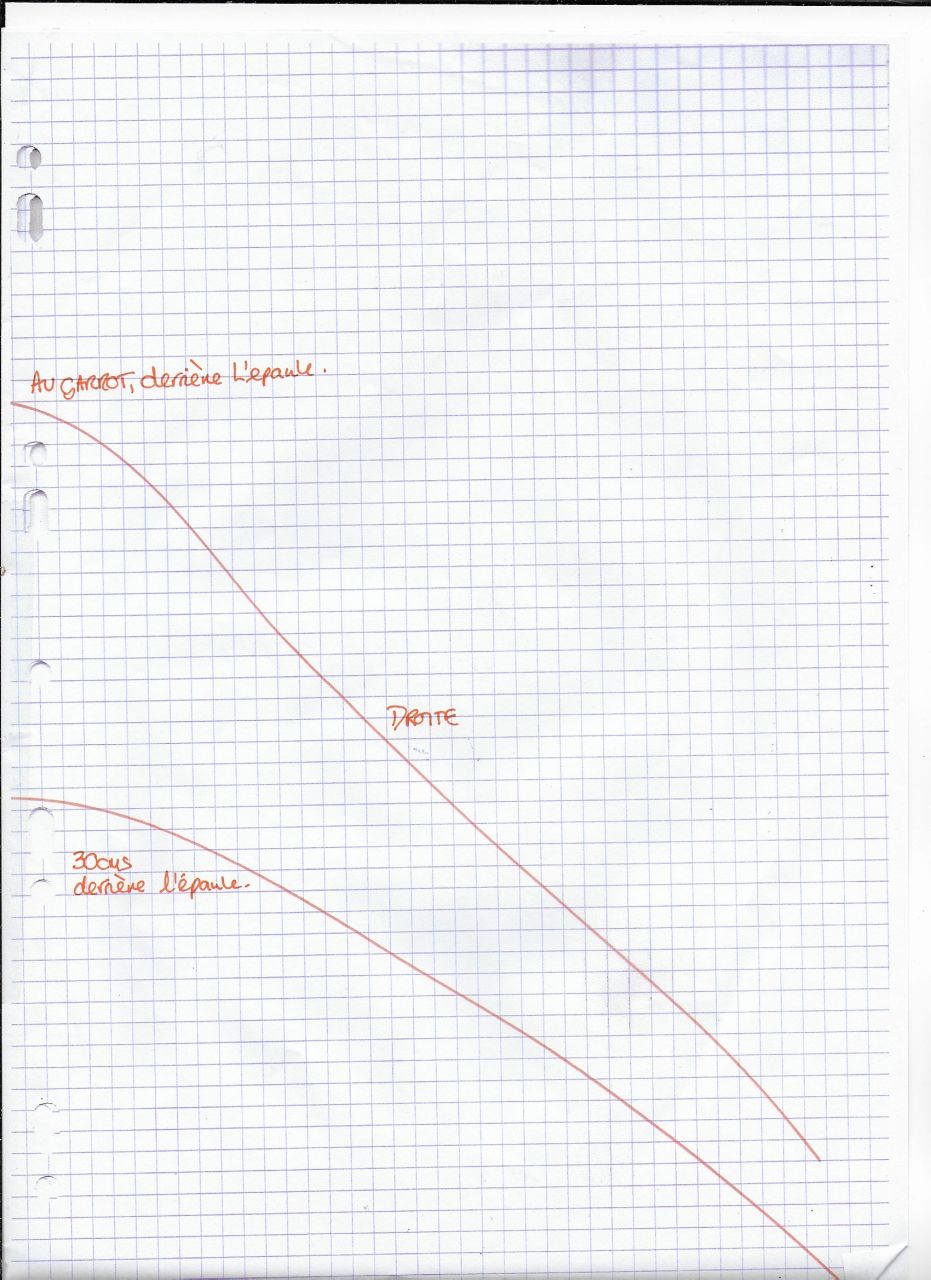 AU GARROT, derrière L'epaule.
DROITE
30cms
derrière l'épaule.